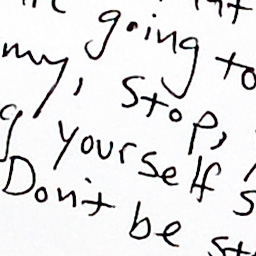 going to
my, stop,
yourself
Don't be